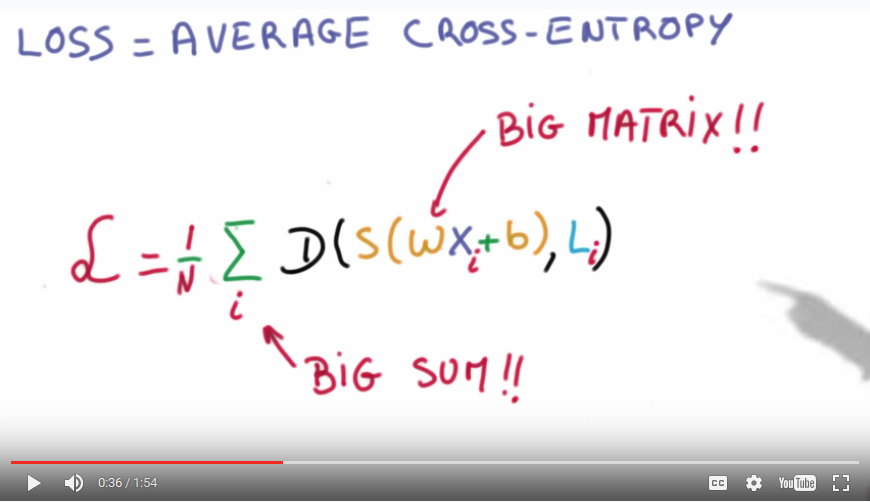 LOSS = AVERAGE CROSS-ENTROPY
BIG MATRIX!!
ℒ = 1/N Σᵢ D(S(WXᵢ+b), Lᵢ)
BIG SUM!!
0:36 / 1:54
CC
YouTube